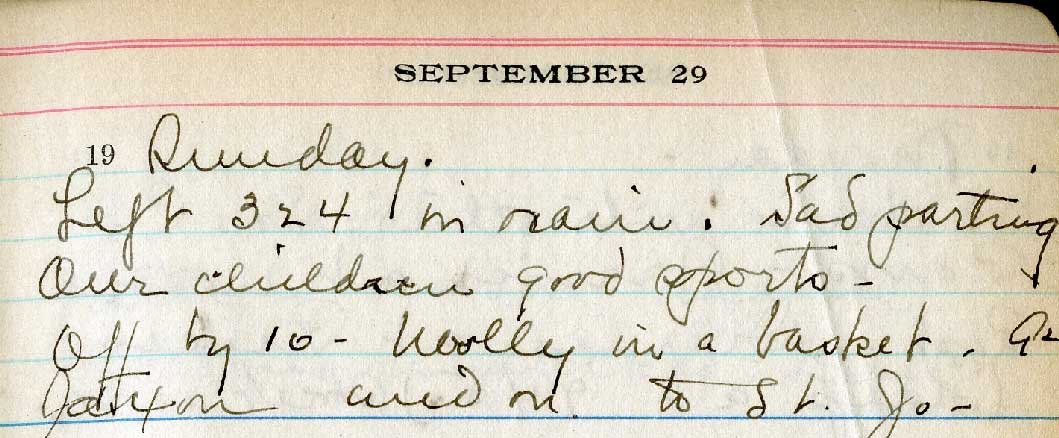 SEPTEMBER 29
19 Sunday.
Left 324 in rain. Sad parting
Our children good sports -
Off by 10 - Woolly in a basket.
and on to St. Jo -